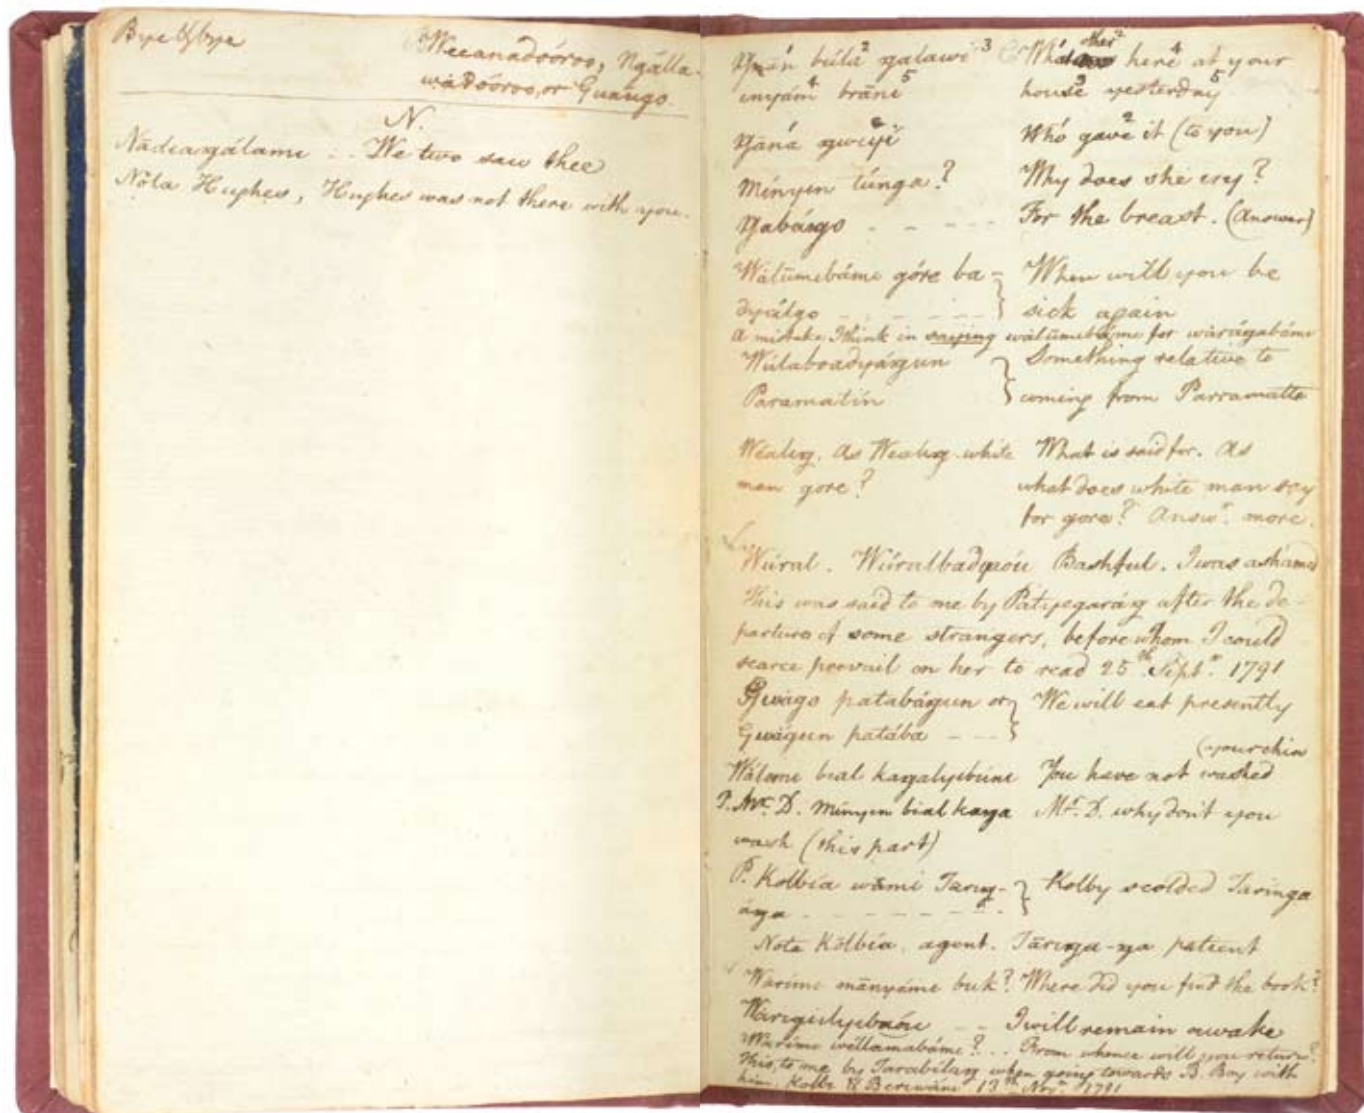 Bye & bye
Weeanadsóroo, Ngálla-
wadsóroo, or Guáugo.
N.
Nadiaŋálami . . We two saw thee
Nóta Hughes, Hughes was not there with you.
Ŋán búla² ŋalawi³ Whó other² here⁴ at your
inyám⁴ bráni⁵ house³ yesterday⁵
Ŋáná ŋwiyi² Whó gave² it (to you)
Mínyin túnga? Why does she cry?
Ŋabáŋo - - - - For the breast. (Answer)
Wálumibámi góre ba- When will you be
dyálgo - - - - sick again
A mistake I think in saying wálumibámi for wáraŋabámi
Wúlaboadyáŋun Something relative to
Paramatín coming from Parramatta
Wéaliŋ. As Wealiŋ white What is said for. As
man gore? what does white man say
for gore? Answr. more.
Wúral. Wúralbadyaóu Bashful. I was ashamed
This was said to me by Patyegaráŋ after the de-
parture of some strangers, before whom I could
scarce prevail on her to read 25th. Septr. 1791
Gwágo patabáŋun or We will eat presently
Gwágun patába - - -
(your chin
Wálomi bial kaŋalyibími You have not washed
P. Mr. D. minyin bial kaŋa Mr. D. why don't you
wash (this part)
P. Kolbía wámi Tariŋ- Kolby scolded Taringa
áŋa - - - - - -
Note Kólbia, agent. Táriŋa-ŋa patient
Warími mányámi buk? Where did you find the book?
Waŋidyibaóu - - I will remain awake
Warími wéllamabámi? . . From whence will you return?
This, to me by Tarabílaŋ when going towards B. Bay with
him, Kolbi & Beriwáni 13th Novr. 1791